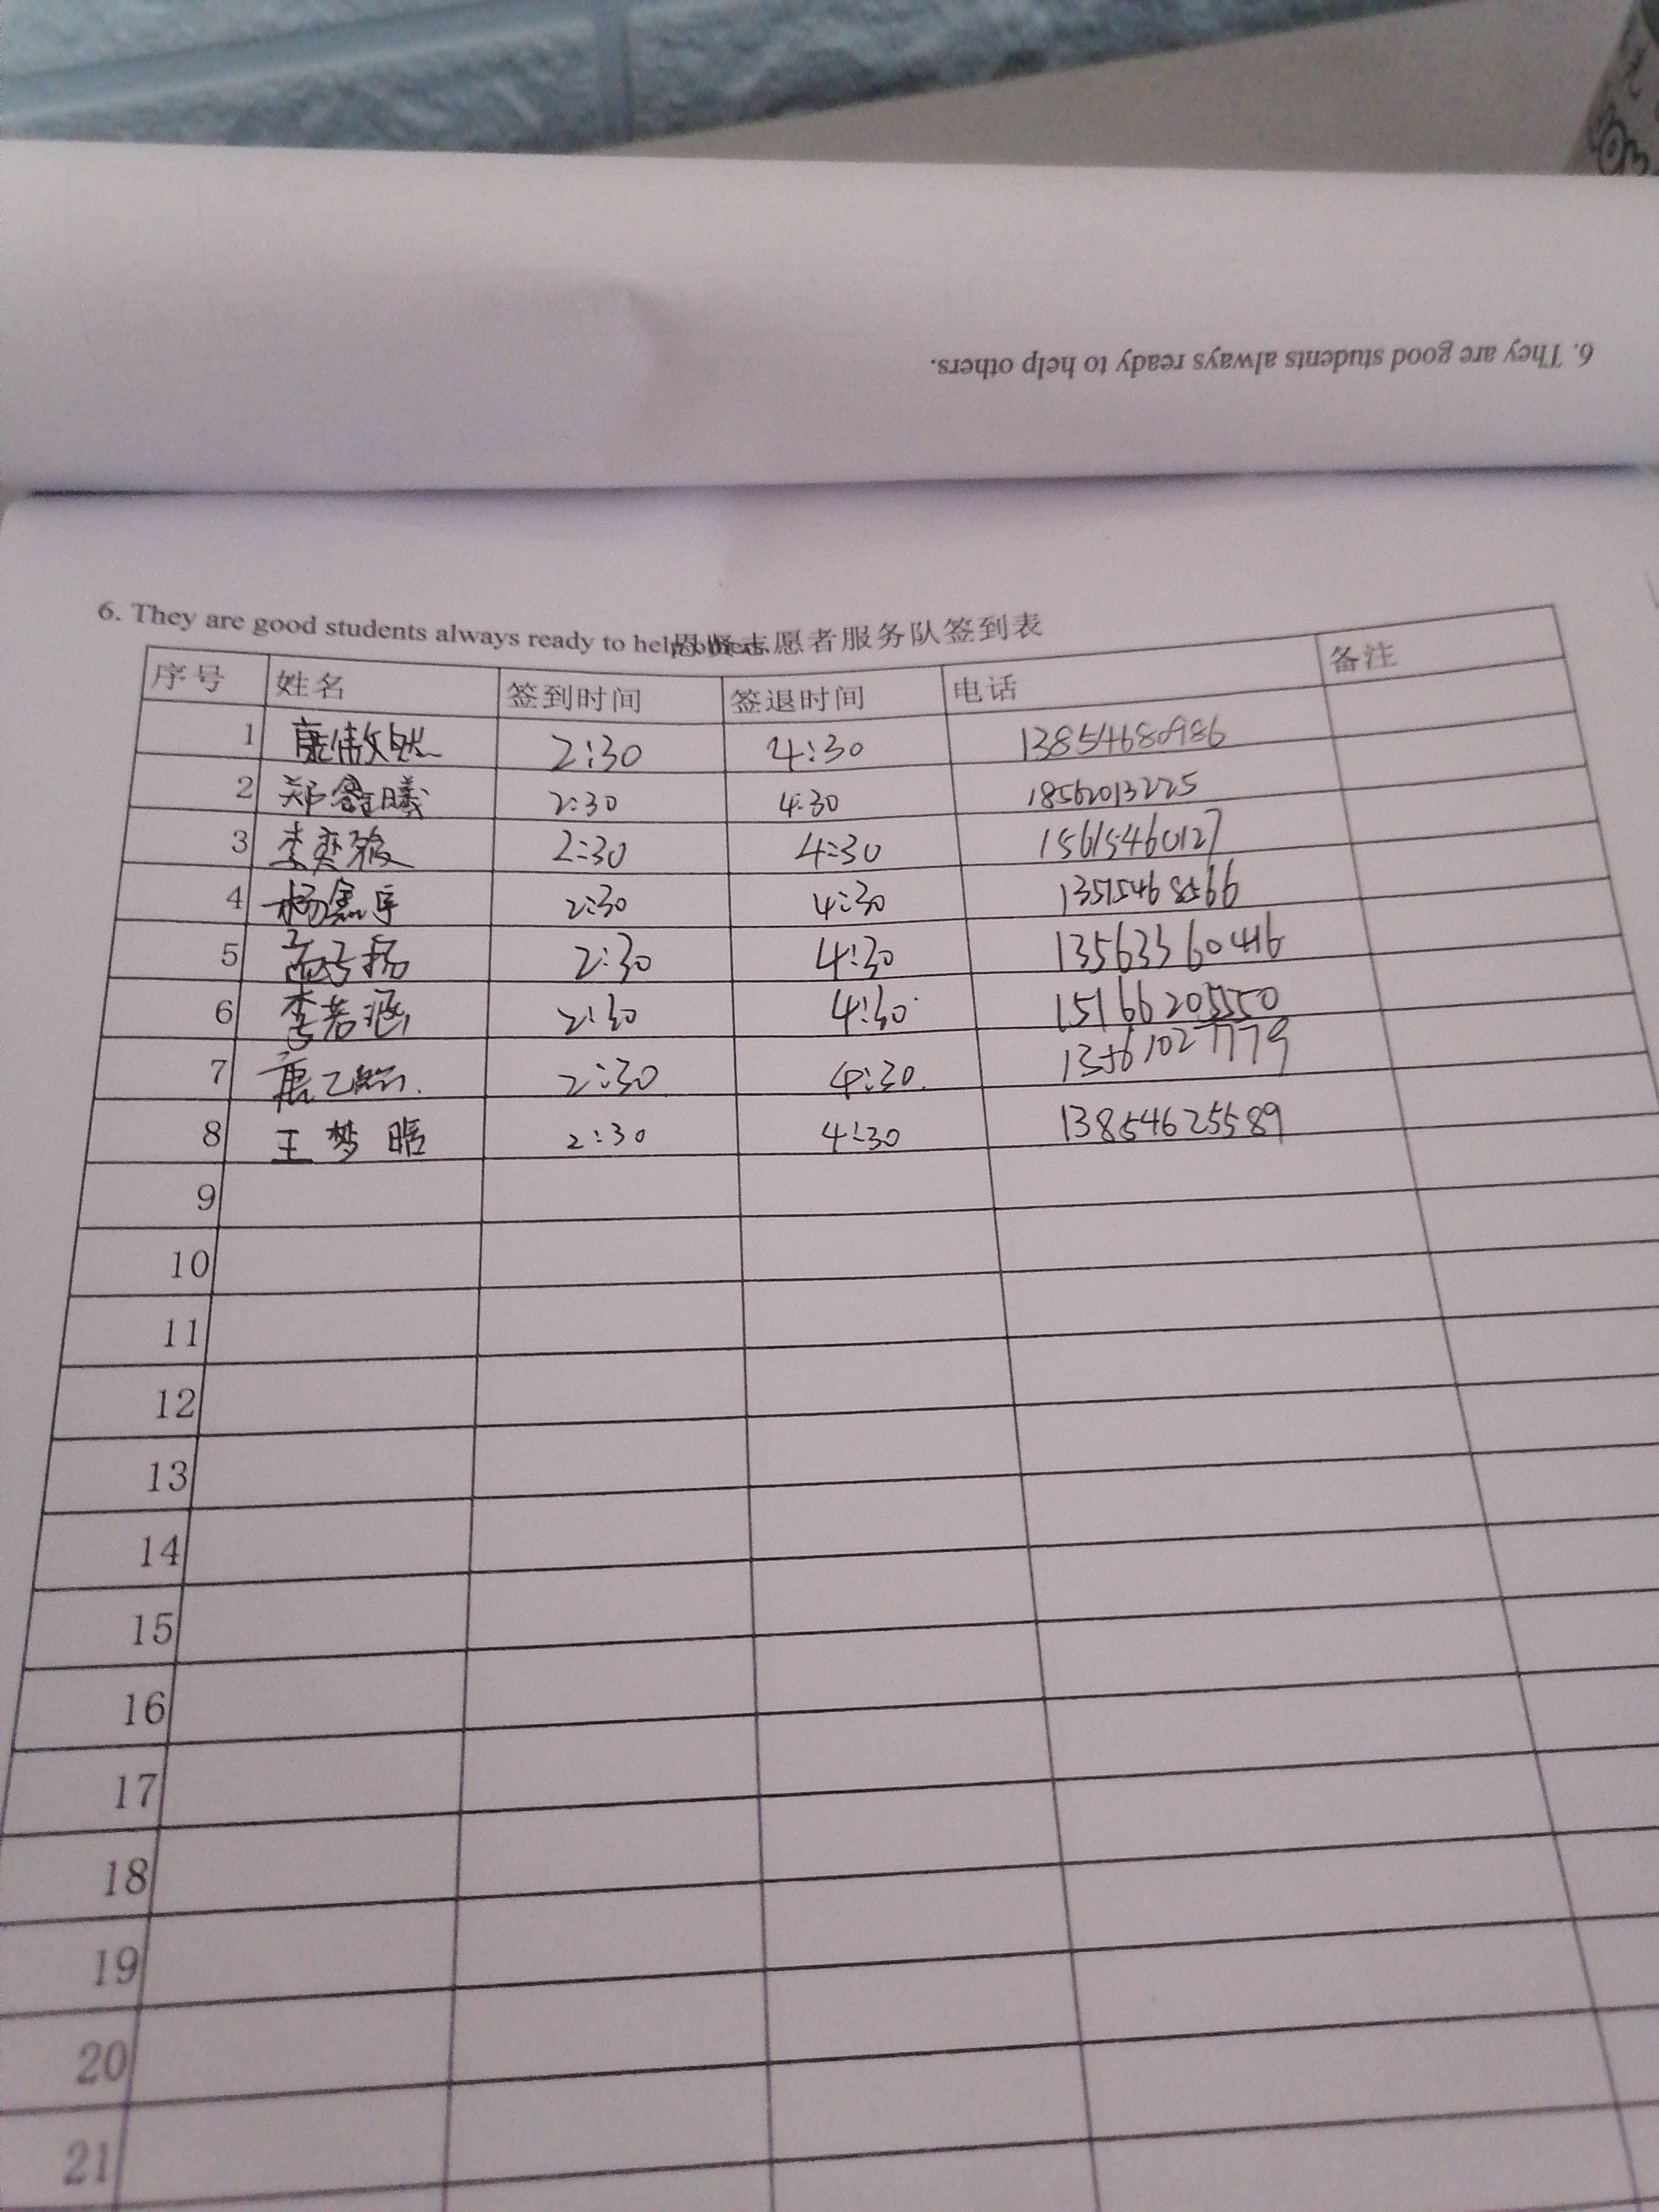 6. They are good students always ready to help others.
6. They are good students always ready to help others.
恩贤志愿者服务队签到表
序号 姓名 签到时间 签退时间 电话 备注
1 2:30 4:30 13854680986
2 郑鑫曦 2:30 4:30 18562013225
3 李奕 2:30 4:30 15615460127
4 杨 宇 2:30 4:30 13515468566
5 孟子扬 2:30 4:30 13563360416
6 李若涵 2:30 4:30 15166205550
7 唐乙 2:30 4:30 13561027779
8 王梦晗 2:30 4:30 13854625589
9
10
11
12
13
14
15
16
17
18
19
20
21